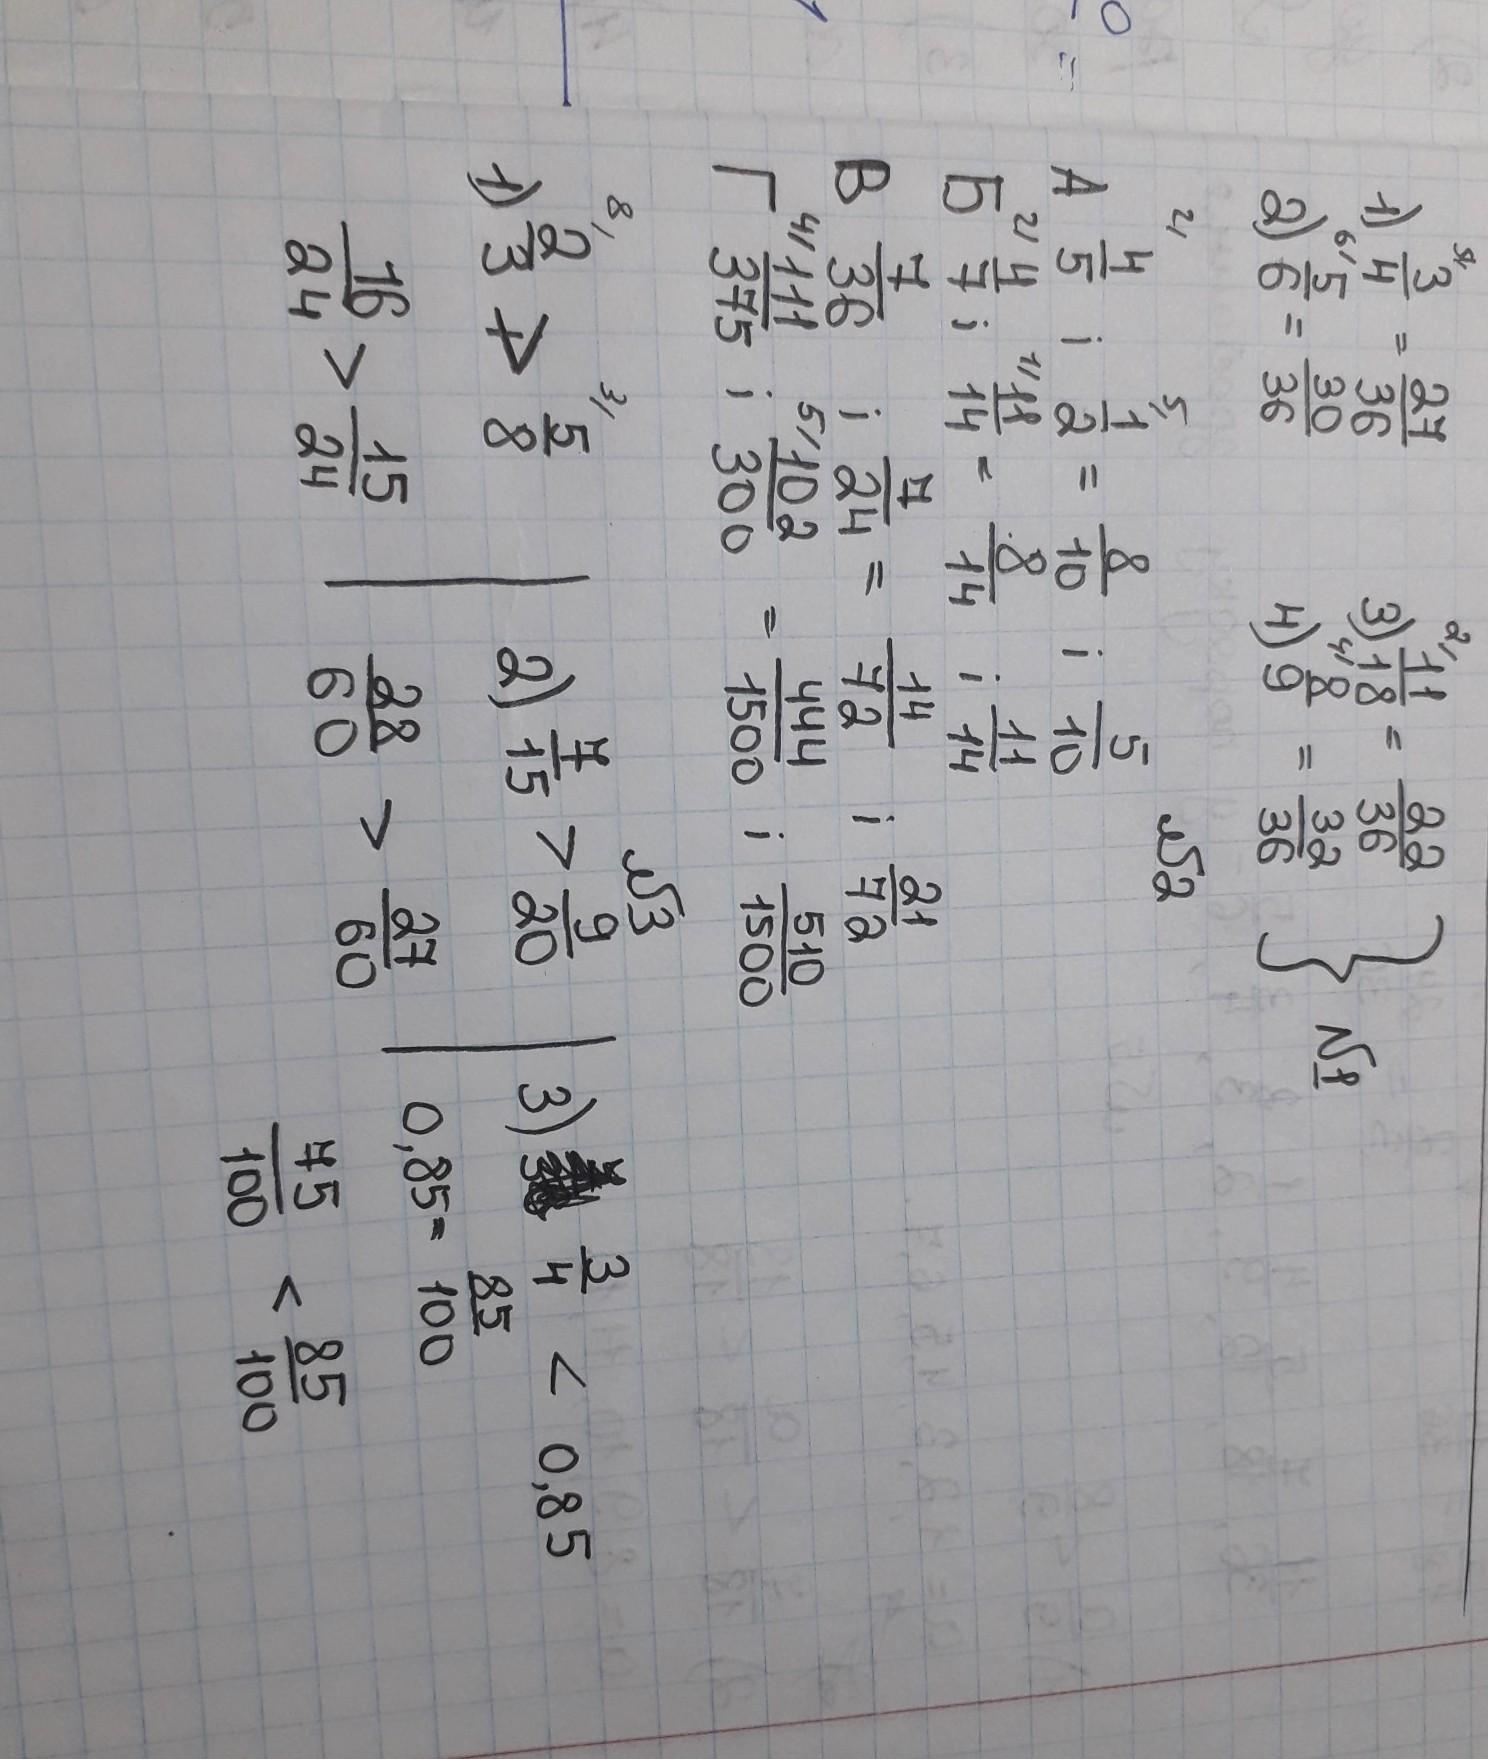 1) 9/ 3/4 = 27/36
2) 6/ 5/6 = 30/36
3) 2/ 11/18 = 22/36
4) 4/ 8/9 = 32/36
№1
№2
А 2/ 4/5 ; 5/ 1/2 = 8/10 ; 5/10
Б 2/ 4/7 ; 1/ 11/14 = 8/14 ; 11/14
В 7/36 ; 7/24 = 14/72 ; 21/72
Г 4/ 111/375 ; 5/ 102/300 = 444/1500 ; 510/1500
№3
1) 8/ 2/3 > 3/ 5/8
16/24 > 15/24
2) 7/15 > 9/20
28/60 > 27/60
3) 3/4 < 0,85
0,85 = 85/100
75/100 < 85/100